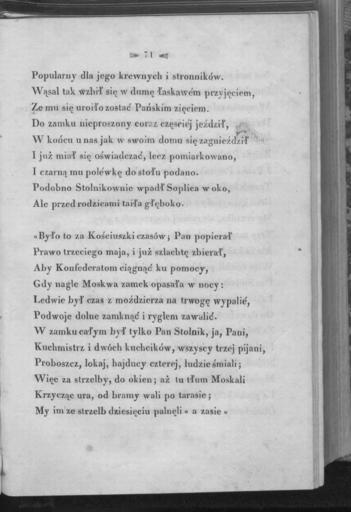 71
Popularny dla jego krewnych i stronników.
Wąsal tak wzbił się w dumę łaskawém przyjęciem,
Że mu się uroiło zostać Pańskim zięciem.
Do zamku nieproszony coraz częściéj jeździł,
W końcu u nas jak w swoim domu się zagnieździł
I już miał się oświadczać, lecz pomiarkowano,
I czarną mu polewkę do stołu podano.
Podobno Stolnikownie wpadł Soplica w oko,
Ale przed rodzicami taiła głęboko.
«Było to za Kościuszki czasów; Pan popierał
Prawo trzeciego maja, i już szlachtę zbierał,
Aby Konfederatom ciągnąć ku pomocy,
Gdy nagle Moskwa zamek opasała w nocy:
Ledwie był czas z moździerza na trwogę wypalić,
Podwoje dolne zamknąć i ryglem zawalić.
W zamku całym był tylko Pan Stolnik, ja, Pani,
Kuchmistrz i dwóch kuchcików, wszyscy trzej pijani,
Proboszcz, lokaj, hajducy czterej, ludzie śmiali;
Więc za strzelby, do okien; aż tu tłum Moskali
Krzycząc ura, od bramy wali po tarasie;
My im ze strzelb dziesięciu palnęli « a zasie »